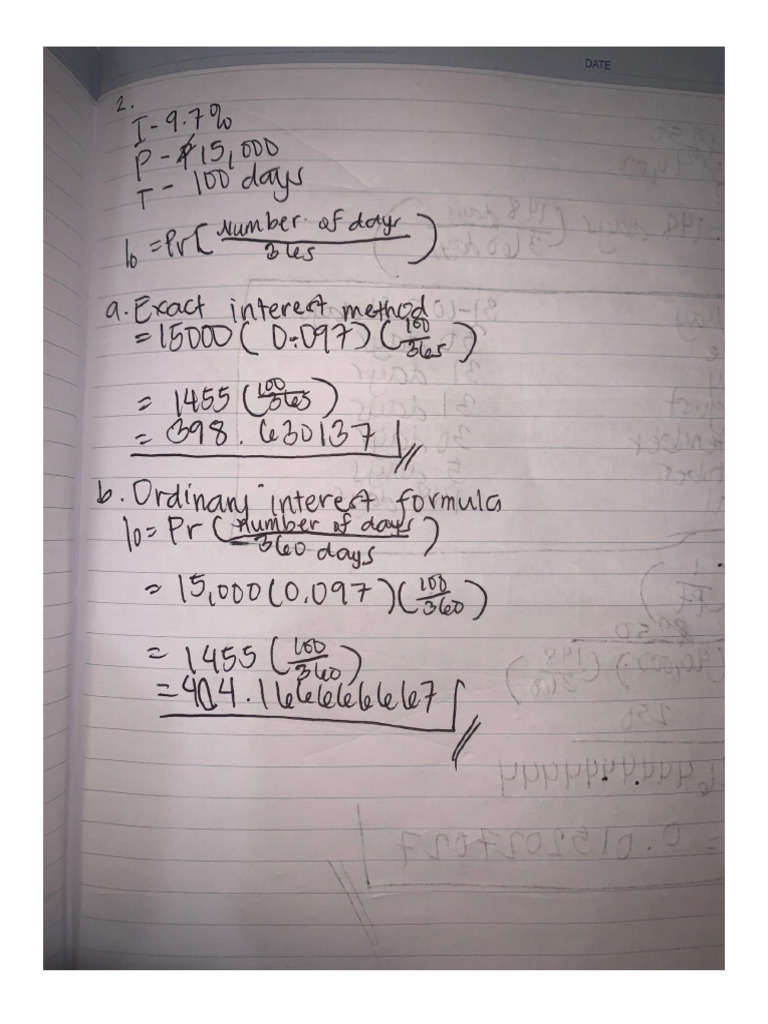 DATE
2.
I - 9.7%
P - ₱15,000
T - 100 days
Io = Pr [ Number of days / 365 )
a. Exact interest method
= 15000 ( 0.097) ( 100/365 )
= 1455 ( 100/365 )
= 398.630137
b. Ordinary interest formula
Io = Pr ( number of days / 360 days )
= 15,000 (0.097) ( 100/360 )
= 1455 ( 100/360 )
= 404.1666666667